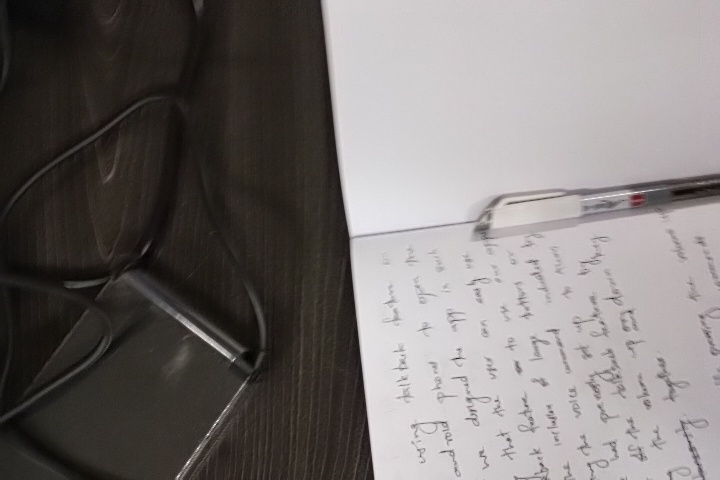 using talkback feature on
android phones to open the
we designed the app in such
that the user can easily use
feature to use our app
the inclusion of large buttons or
the voice command indicated by
had previously set up to turn
off the talkback feature by
the volume up and down key
together.
pressing the volume
commands